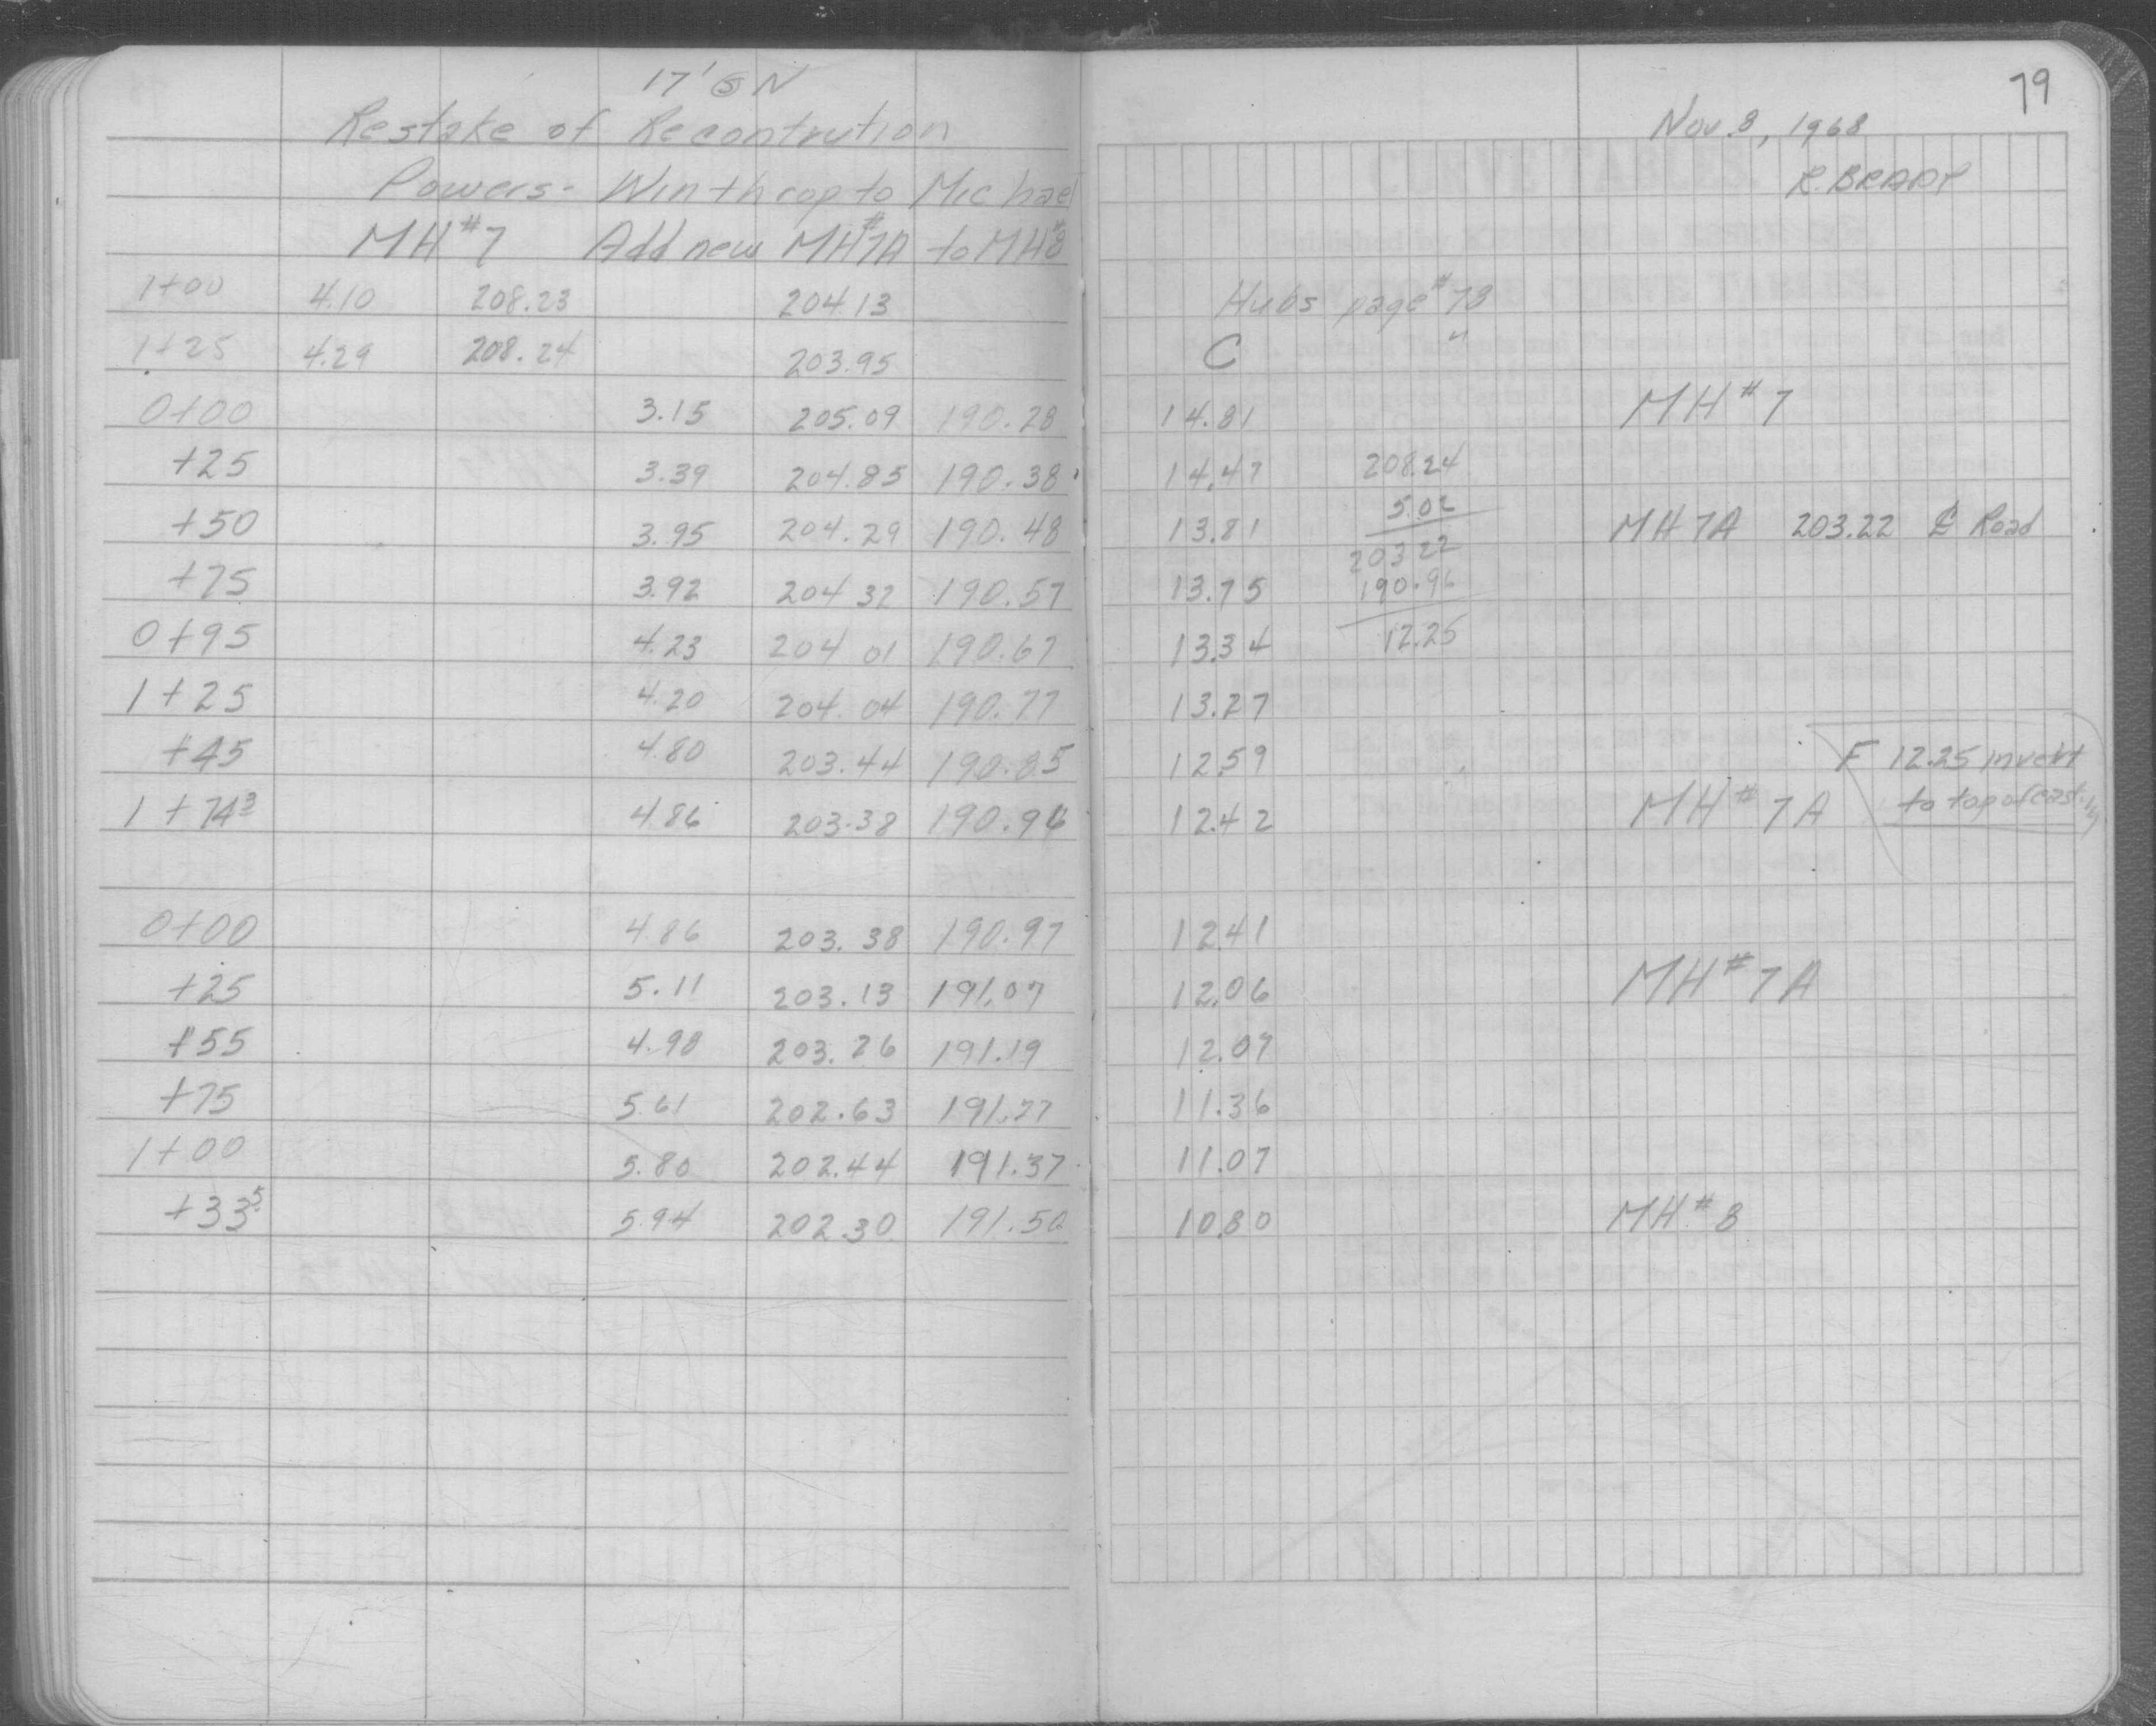 17' @ N
Restake of Recontrution
Powers - Winthrop to Michael
MH#7 Add new MH#7A to MH#8
1+00 4.10 208.23 204.13
1+25 4.29 208.24 203.95
0+00 3.15 205.09 190.28
+25 3.39 204.85 190.38
+50 3.95 204.29 190.48
+75 3.92 204 32 190.57
0+95 4.23 204 01 190.67
1+25 4.20 204.04 190.77
+45 4.80 203.44 190.85
1+74³ 4.86 203.38 190.96
0+00 4.86 203.38 190.97
+25 5.11 203.13 191.07
+55 4.98 203.26 191.19
+75 5.61 202.63 191.27
1+00 5.80 202.44 191.37
+33⁵ 5.94 202.30 191.50
79
Nov. 8, 1968
R. BRADY
Hubs page #78
C "
14.81 MH#7
14.47 208.24
5.02
13.81 203 22 MH 7A 203.22 ℄ Road
13.75 190.96
13.34 12.25
13.27
12.59 F 12.25 invert
12.42 MH#7A to top of casting
12.41
12.06 MH#7A
12.07
11.36
11.07
10.80 MH#8